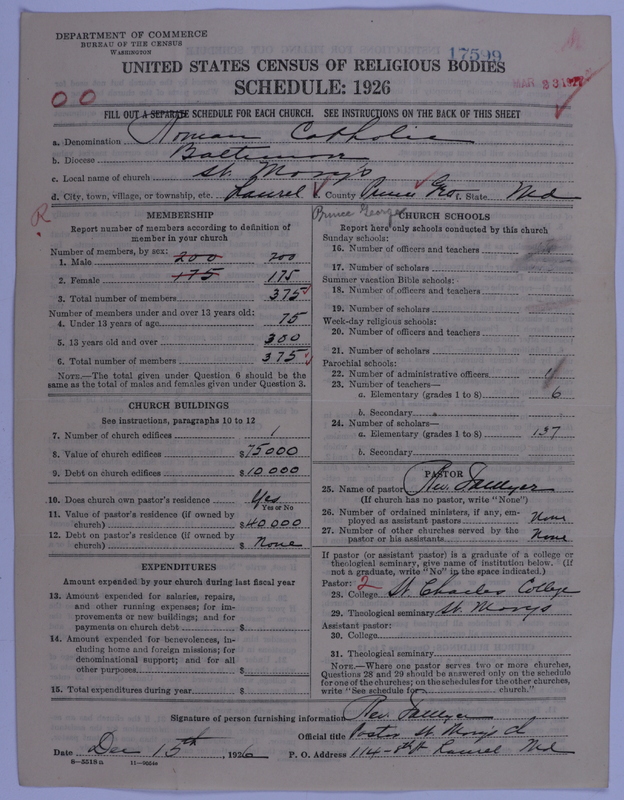 DEPARTMENT OF COMMERCE
BUREAU OF THE CENSUS
WASHINGTON
17599
UNITED STATES CENSUS OF RELIGIOUS BODIES
MAR 23 1927
SCHEDULE: 1926
00
FILL OUT A SEPARATE SCHEDULE FOR EACH CHURCH. SEE INSTRUCTIONS ON THE BACK OF THIS SHEET
a. Denomination Roman Catholic
b. Diocese Baltimore
c. Local name of church St. Marys
d. City, town, village, or township, etc. Laurel e. County Prince Geo f. State Md
R
Prince George
MEMBERSHIP
Report number of members according to definition of
member in your church
Number of members, by sex:
1. Male 200 200
2. Female 175 175
3. Total number of members 375
Number of members under and over 13 years old:
4. Under 13 years of age 75
5. 13 years old and over 300
6. Total number of members 375
NOTE.—The total given under Question 6 should be
the same as the total of males and females given under Question 3.
CHURCH BUILDINGS
See instructions, paragraphs 10 to 12
7. Number of church edifices 1
8. Value of church edifices $75000
9. Debt on church edifices $10,000
10. Does church own pastor's residence Yes
Yes or No
11. Value of pastor's residence (if owned by
church) $40,000
12. Debt on pastor's residence (if owned by
church) $ None
EXPENDITURES
Amount expended by your church during last fiscal year
13. Amount expended for salaries, repairs,
and other running expenses; for im-
provements or new buildings; and for
payments on church debt $
14. Amount expended for benevolences, in-
cluding home and foreign missions; for
denominational support; and for all
other purposes $
15. Total expenditures during year $
CHURCH SCHOOLS
Report here only schools conducted by this church
Sunday schools:
16. Number of officers and teachers
17. Number of scholars
Summer vacation Bible schools:
18. Number of officers and teachers
19. Number of scholars
Week-day religious schools:
20. Number of officers and teachers
21. Number of scholars
Parochial schools:
22. Number of administrative officers
23. Number of teachers—
a. Elementary (grades 1 to 8) 6
b. Secondary
24. Number of scholars—
a. Elementary (grades 1 to 8) 137
b. Secondary
PASTOR
25. Name of pastor Rev. Sawyer
(If church has no pastor, write "None")
26. Number of ordained ministers, if any, em-
ployed as assistant pastors None
27. Number of other churches served by the
pastor or his assistants None
If pastor (or assistant pastor) is a graduate of a college or
theological seminary, give name of institution below. (If
not a graduate, write "No" in the space indicated.)
Pastor: 2
28. College St. Charles College
29. Theological seminary St. Marys
Assistant pastor:
30. College
31. Theological seminary
NOTE.—Where one pastor serves two or more churches,
Questions 28 and 29 should be answered only on the schedule
for one of the churches; on the schedules for the other churches,
write "See schedule for church."
Signature of person furnishing information Rev. Sawyer
Official title Pastor St Marys
Date Dec 15th, 1926 P. O. Address 114 Laurel Md
8—5518a 11—